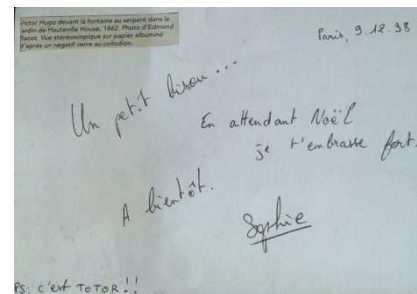 Victor Hugo devant la fontaine au serpent dans le
jardin de Hauteville House, 1862. Photo d'Edmond
Bacot. Vue stéréoscopique sur papier albuminé
d'après un négatif verre au collodion.
Paris, 9.12.98
Un petit bisou...
En attendant Noël
je t'embrasse fort.
A bientôt.
Sophie
PS: c'est TOTOR!!